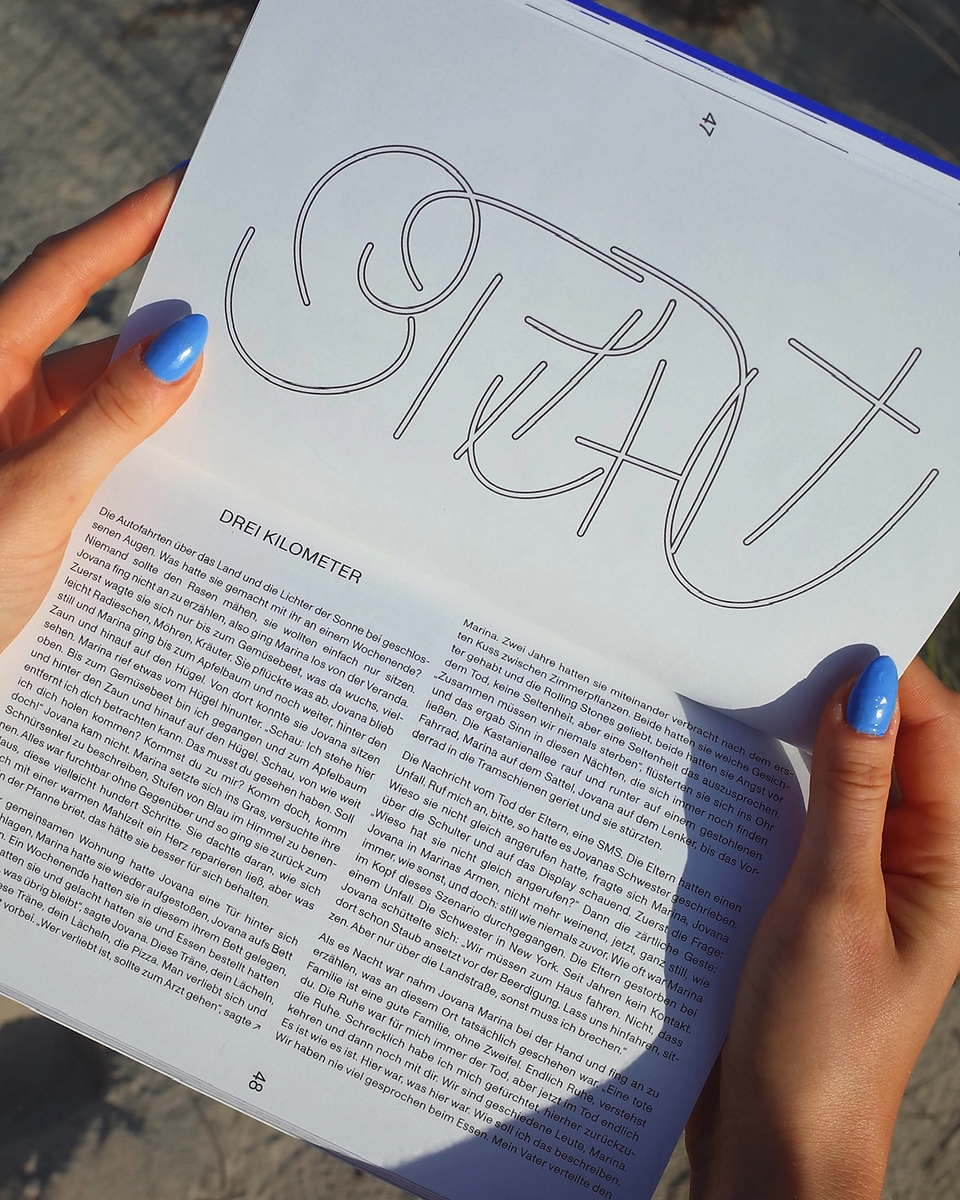 47
DREI KILOMETER
Die Autofahrten über das Land und die Lichter der Sonne bei geschlos-
senen Augen. Was hatte sie gemacht mit ihr an einem Wochenende?
Niemand sollte den Rasen mähen, sie wollten einfach nur sitzen.
Jovana fing nicht an zu erzählen, also ging Marina los von der Veranda.
Zuerst wagte sie sich nur bis zum Gemüsebeet, was da wuchs, viel-
leicht Radieschen, Möhren, Kräuter. Sie pflückte was ab, Jovana blieb
still und Marina ging bis zum Apfelbaum und noch weiter, hinter den
Zaun und hinauf auf den Hügel. Von dort konnte sie Jovana sitzen
sehen. Marina rief etwas vom Hügel hinunter. „Schau: Ich stehe hier
oben. Bis zum Gemüsebeet bin ich gegangen, und zum Apfelbaum
und hinter den Zaun und hinauf auf den Hügel. Schau, von wie weit
entfernt ich dich betrachten kann. Das musst du gesehen haben. Soll
ich dich holen kommen? Kommst du zu mir? Komm doch, komm
doch!“ Jovana kam nicht. Marina setzte sich ins Gras, versuchte ihre
Schnürsenkel zu beschreiben, Stufen von Blau im Himmel zu benen-
Alles war furchtbar ohne Gegenüber und so ging sie zurück zum
diese vielleicht hundert Schritte. Sie dachte daran, wie sich
mit einer warmen Mahlzeit ein Herz reparieren ließ, aber was
der Pfanne briet, das hätte sie besser für sich behalten.
gemeinsamen Wohnung hatte Jovana eine Tür hinter sich
Marina hatte sie wieder aufgestoßen, Jovana aufs Bett
Ein Wochenende hatten sie in diesem ihrem Bett gelegen,
sie und gelacht hatten sie und Essen bestellt hatten
was übrig bleibt“, sagte Jovana. Diese Träne, dein Lächeln,
Träne, dein Lächeln, die Pizza. Man verliebt sich und
vorbei. „Wer verliebt ist, sollte zum Arzt gehen“, sagte ↗
Marina. Zwei Jahre hatten sie miteinander verbracht nach dem ers-
ten Kuss zwischen Zimmerpflanzen. Beide hatten sie weiche Gesich-
ter gehabt und die Rolling Stones geliebt, beide hatten sie Angst vor
dem Tod, keine Seltenheit, aber eine Seltenheit, das auszusprechen.
„Zusammen müssen wir niemals sterben“, flüsterten sie sich ins Ohr
und das ergab Sinn in diesen Nächten, die sich immer noch finden
ließen. Die Kastanienallee rauf und runter auf einem gestohlenen
Fahrrad, Marina auf dem Sattel, Jovana auf dem Lenker, bis das Vor-
derrad in die Tramschienen geriet und sie stürzten.
Die Nachricht vom Tod der Eltern, eine SMS. Die Eltern hatten einen
Unfall. Ruf mich an, bitte, so hatte es Jovanas Schwester geschrieben.
Wieso sie nicht gleich angerufen hatte, fragte sich Marina, Jovana
über die Schulter und auf das Display schauend. Zuerst die Frage:
„Wieso hat sie nicht gleich angerufen?“ Dann die zärtliche Geste:
Jovana in Marinas Armen, nicht mehr weinend, jetzt, ganz still, wie
immer, wie sonst, und doch: still wie niemals zuvor. Wie oft war Marina
im Kopf dieses Szenario durchgegangen. Die Eltern gestorben bei
einem Unfall. Die Schwester in New York. Seit Jahren kein Kontakt.
Jovana schüttelte sich: „Wir müssen zum Haus fahren. Nicht, dass
dort schon Staub ansetzt vor der Beerdigung. Lass uns hinfahren, sit-
zen. Aber nur über die Landstraße, sonst muss ich brechen.“
Als es Nacht war nahm Jovana Marina bei der Hand und fing an zu
erzählen, was an diesem Ort tatsächlich geschehen war. „Eine tote
Familie ist eine gute Familie, ohne Zweifel. Endlich Ruhe, verstehst
du. Die Ruhe war für mich immer der Tod, aber jetzt im Tod endlich
die Ruhe. Schrecklich habe ich mich gefürchtet, hierher zurückzu-
kehren und dann noch mit dir. Wir sind geschiedene Leute, Marina.
Es ist wie es ist. Hier war, was hier war. Wie soll ich das beschreiben.
Wir haben nie viel gesprochen beim Essen. Mein Vater verteilte den
48